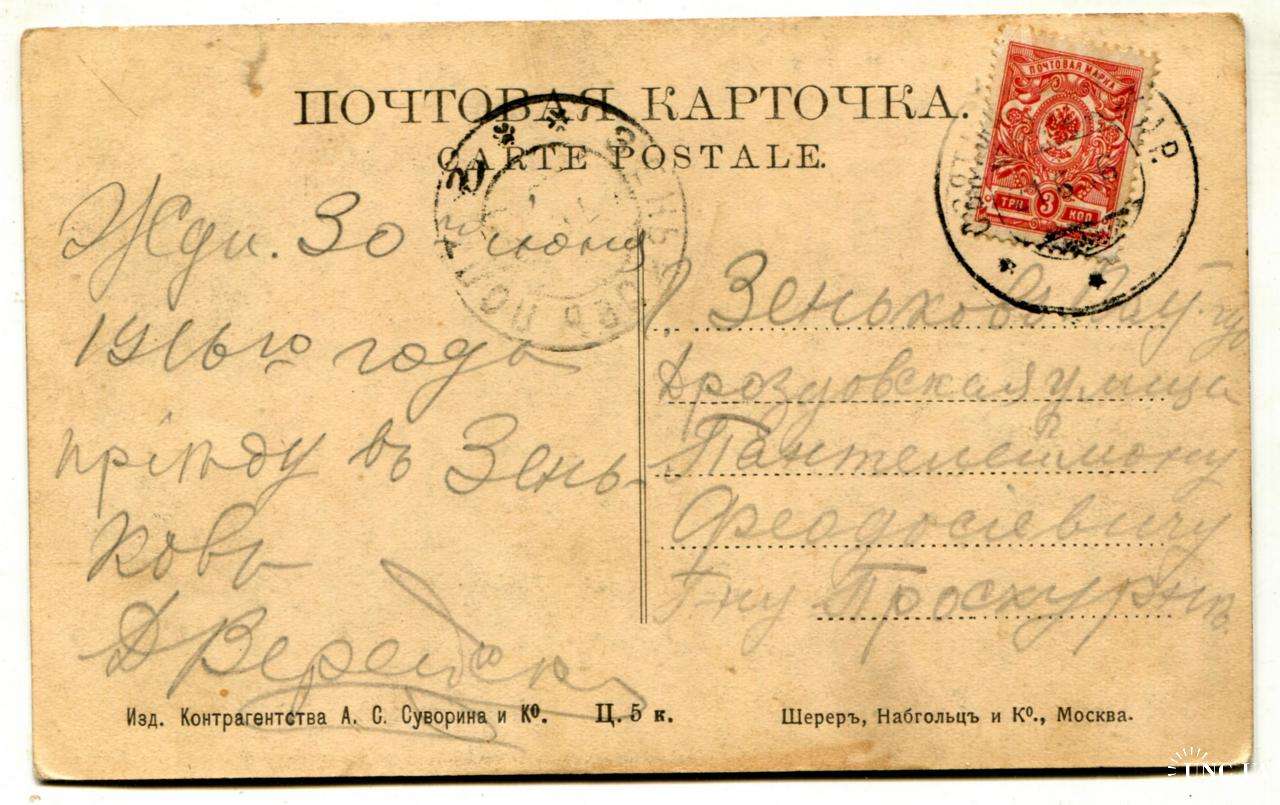 ПОЧТОВАЯ КАРТОЧКА.
CARTE POSTALE.
ПОЧТОВАЯ МАРКА
ТРИ 3 КОП
Жди. 30 июня
года
пріѣду въ Зень-
ковъ
Зеньковъ Пол. гу
Дроздовская улица
Пантелеймону
Феодосіевичу
Гну Проскурнѣ.
Изд. Контрагентства А. С. Суворина и Ко. Ц. 5 к.
Шереръ, Набгольцъ и Ко., Москва.